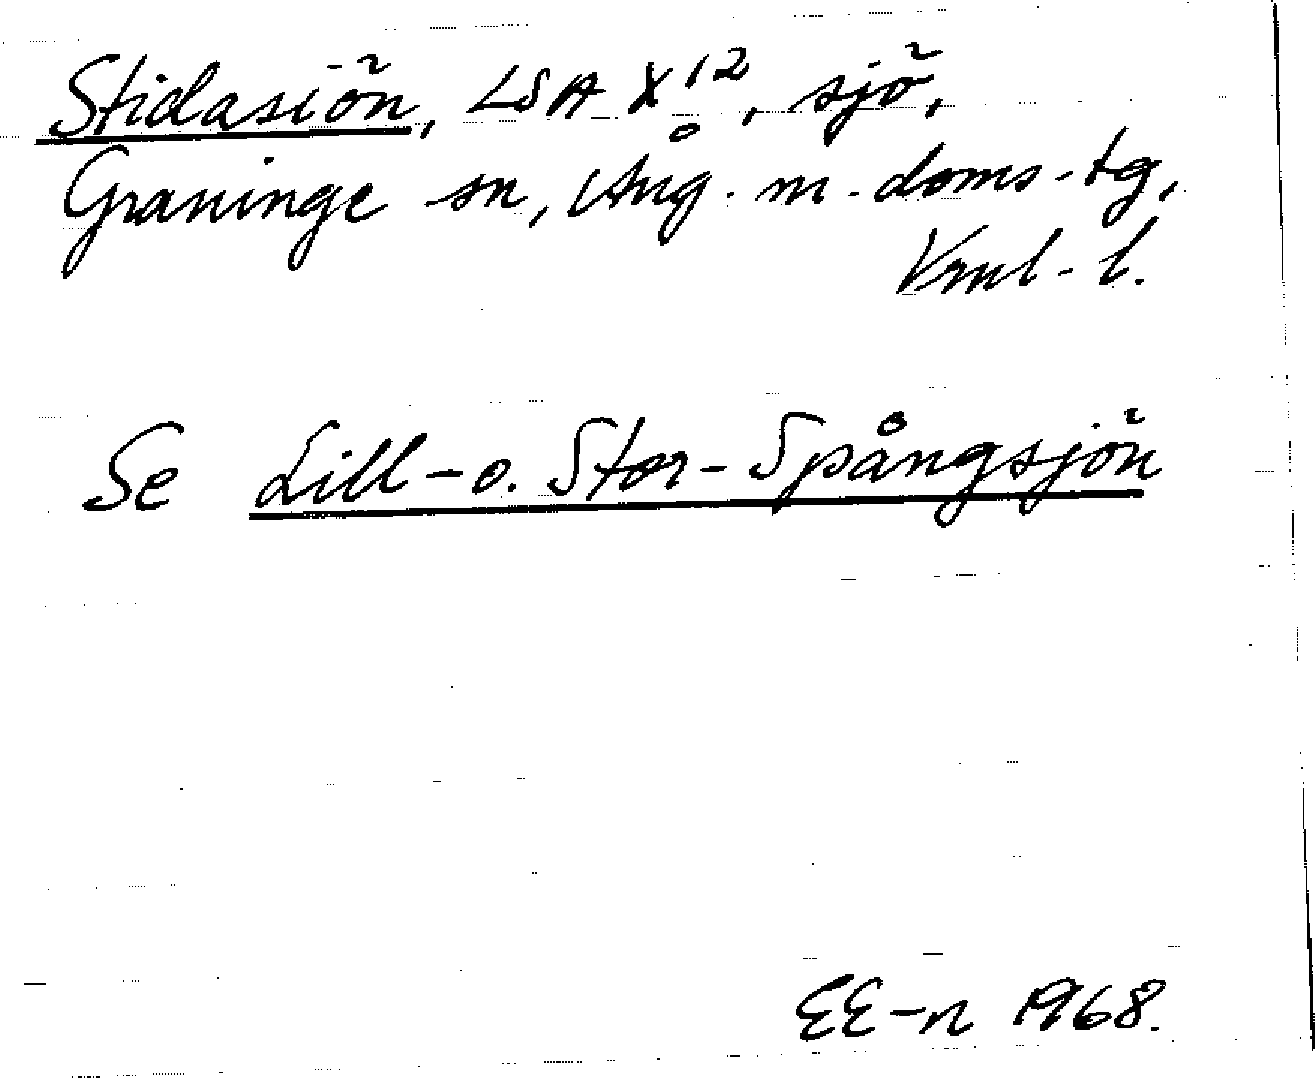 Stidasiön, LSA X 12, sjö,
Graninge sn, Ång. m. doms-tg,
Vrnl-l.
Se Lill- o. Stor-Spångsjön
EE-n 1968.